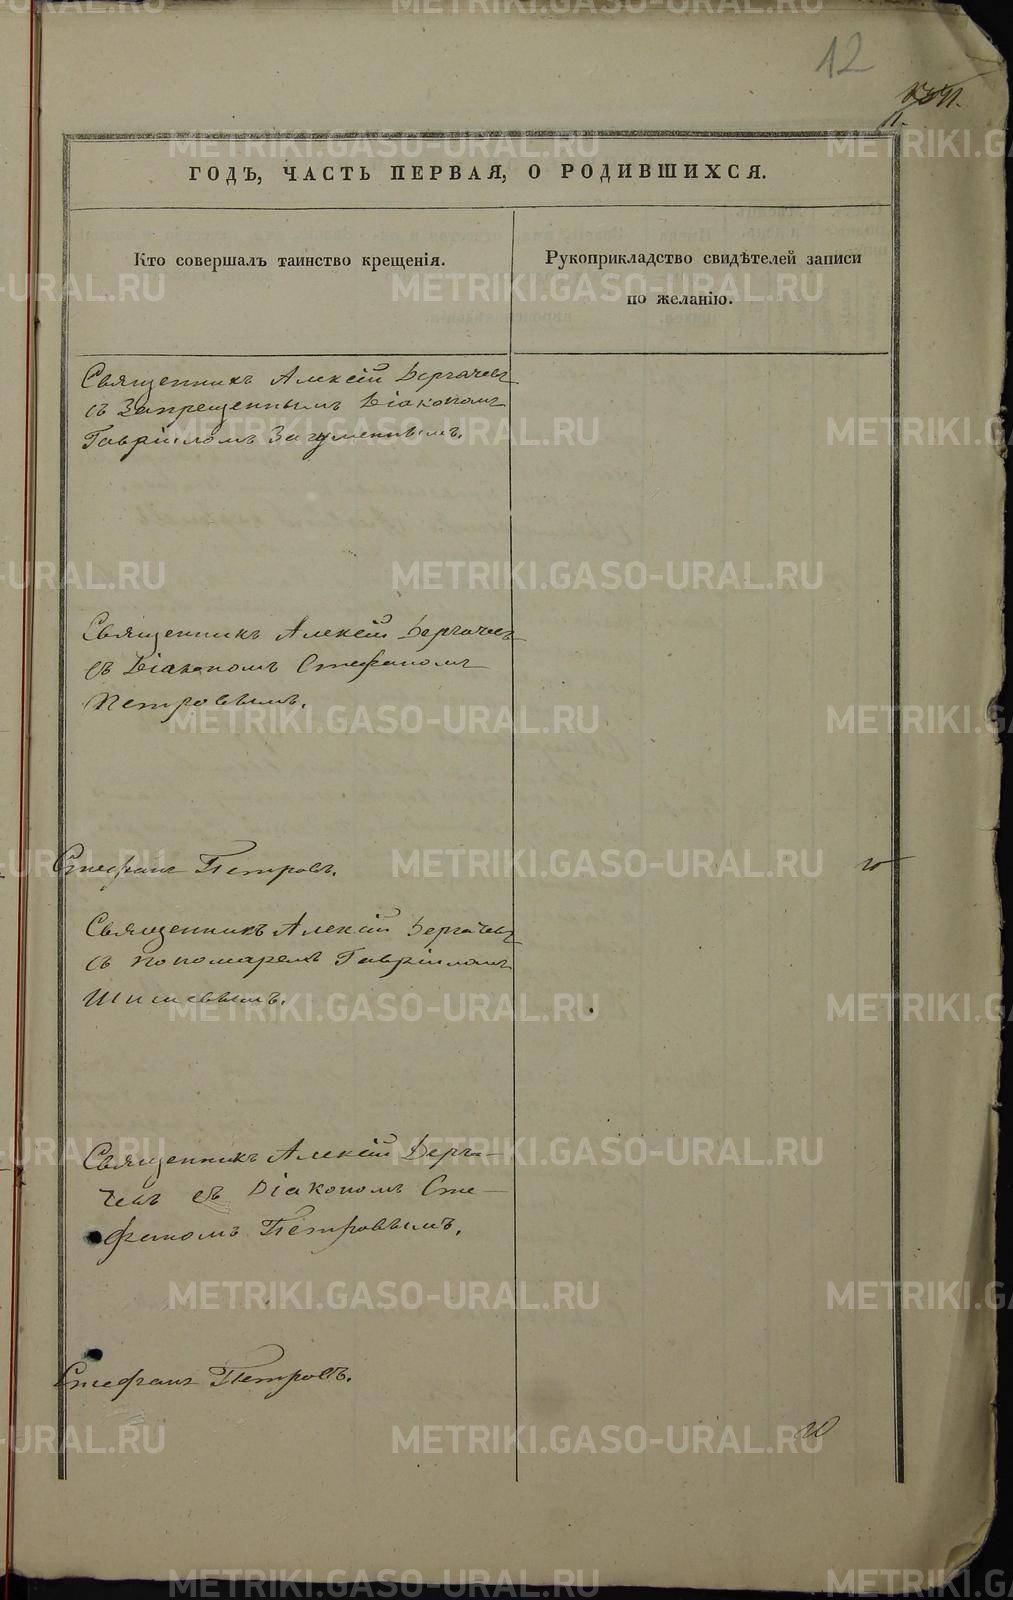 12
11.
ГОДЪ, ЧАСТЬ ПЕРВАЯ, О РОДИВШИХСЯ.
Кто совершалъ таинство крещенія.
Рукоприкладство свидѣтелей записи
по желанію.
Священникъ Алексій Дергачевъ
съ Запрещеннымъ Діакономъ
Гавріиломъ Загуменнымъ.
Священникъ Алексій Дергачевъ
съ Діакономъ Стефаномъ
Петровымъ.
Стефанъ Петровъ.
Священникъ Алексій Дергачевъ
съ пономаремъ Гавріиломъ
Шишевымъ.
Священникъ Алексій Дерга-
чевъ съ Діакономъ Сте-
фаномъ Петровымъ.
Стефанъ Петровъ.
METRIKI.GASO-URAL.RU